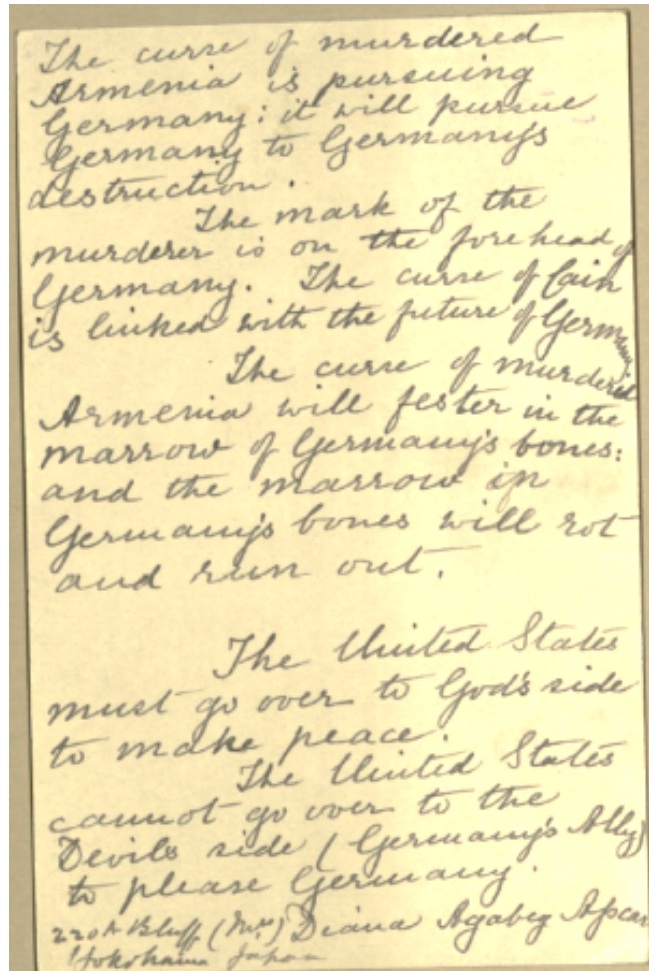 The curse of murdered
Armenia is pursuing
Germany: it will pursue
Germany to Germany's
destruction.
The mark of the
murderer is on the forehead of
Germany. The curse of Cain
is linked with the future of Germany
The curse of murdered
Armenia will fester in the
marrow of Germany's bones:
and the marrow in
Germany's bones will rot
and run out.
The United States
must go over to God's side
to make peace.
The United States
cannot go over to the
Devil's side (Germany's Ally)
to please Germany.
220A Bluff (Mrs) Diana Agabeg Apcar
Yokohama Japan